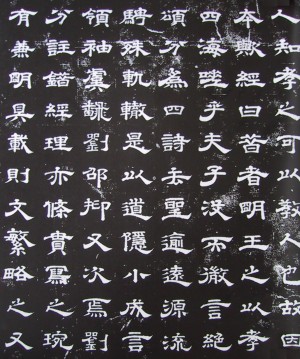 人知孝之可以教人也故因
本歟經曰昔者明王之以孝
四海嗟乎夫子沒而微言絕
頌分為四詩去聖逾遠源流
騁殊軌轍是以道隱小成言
領袖虞翻劉邵抑又次焉劉
分註錯經理亦條貫寫之琬
有兼明具載則文繁略之又